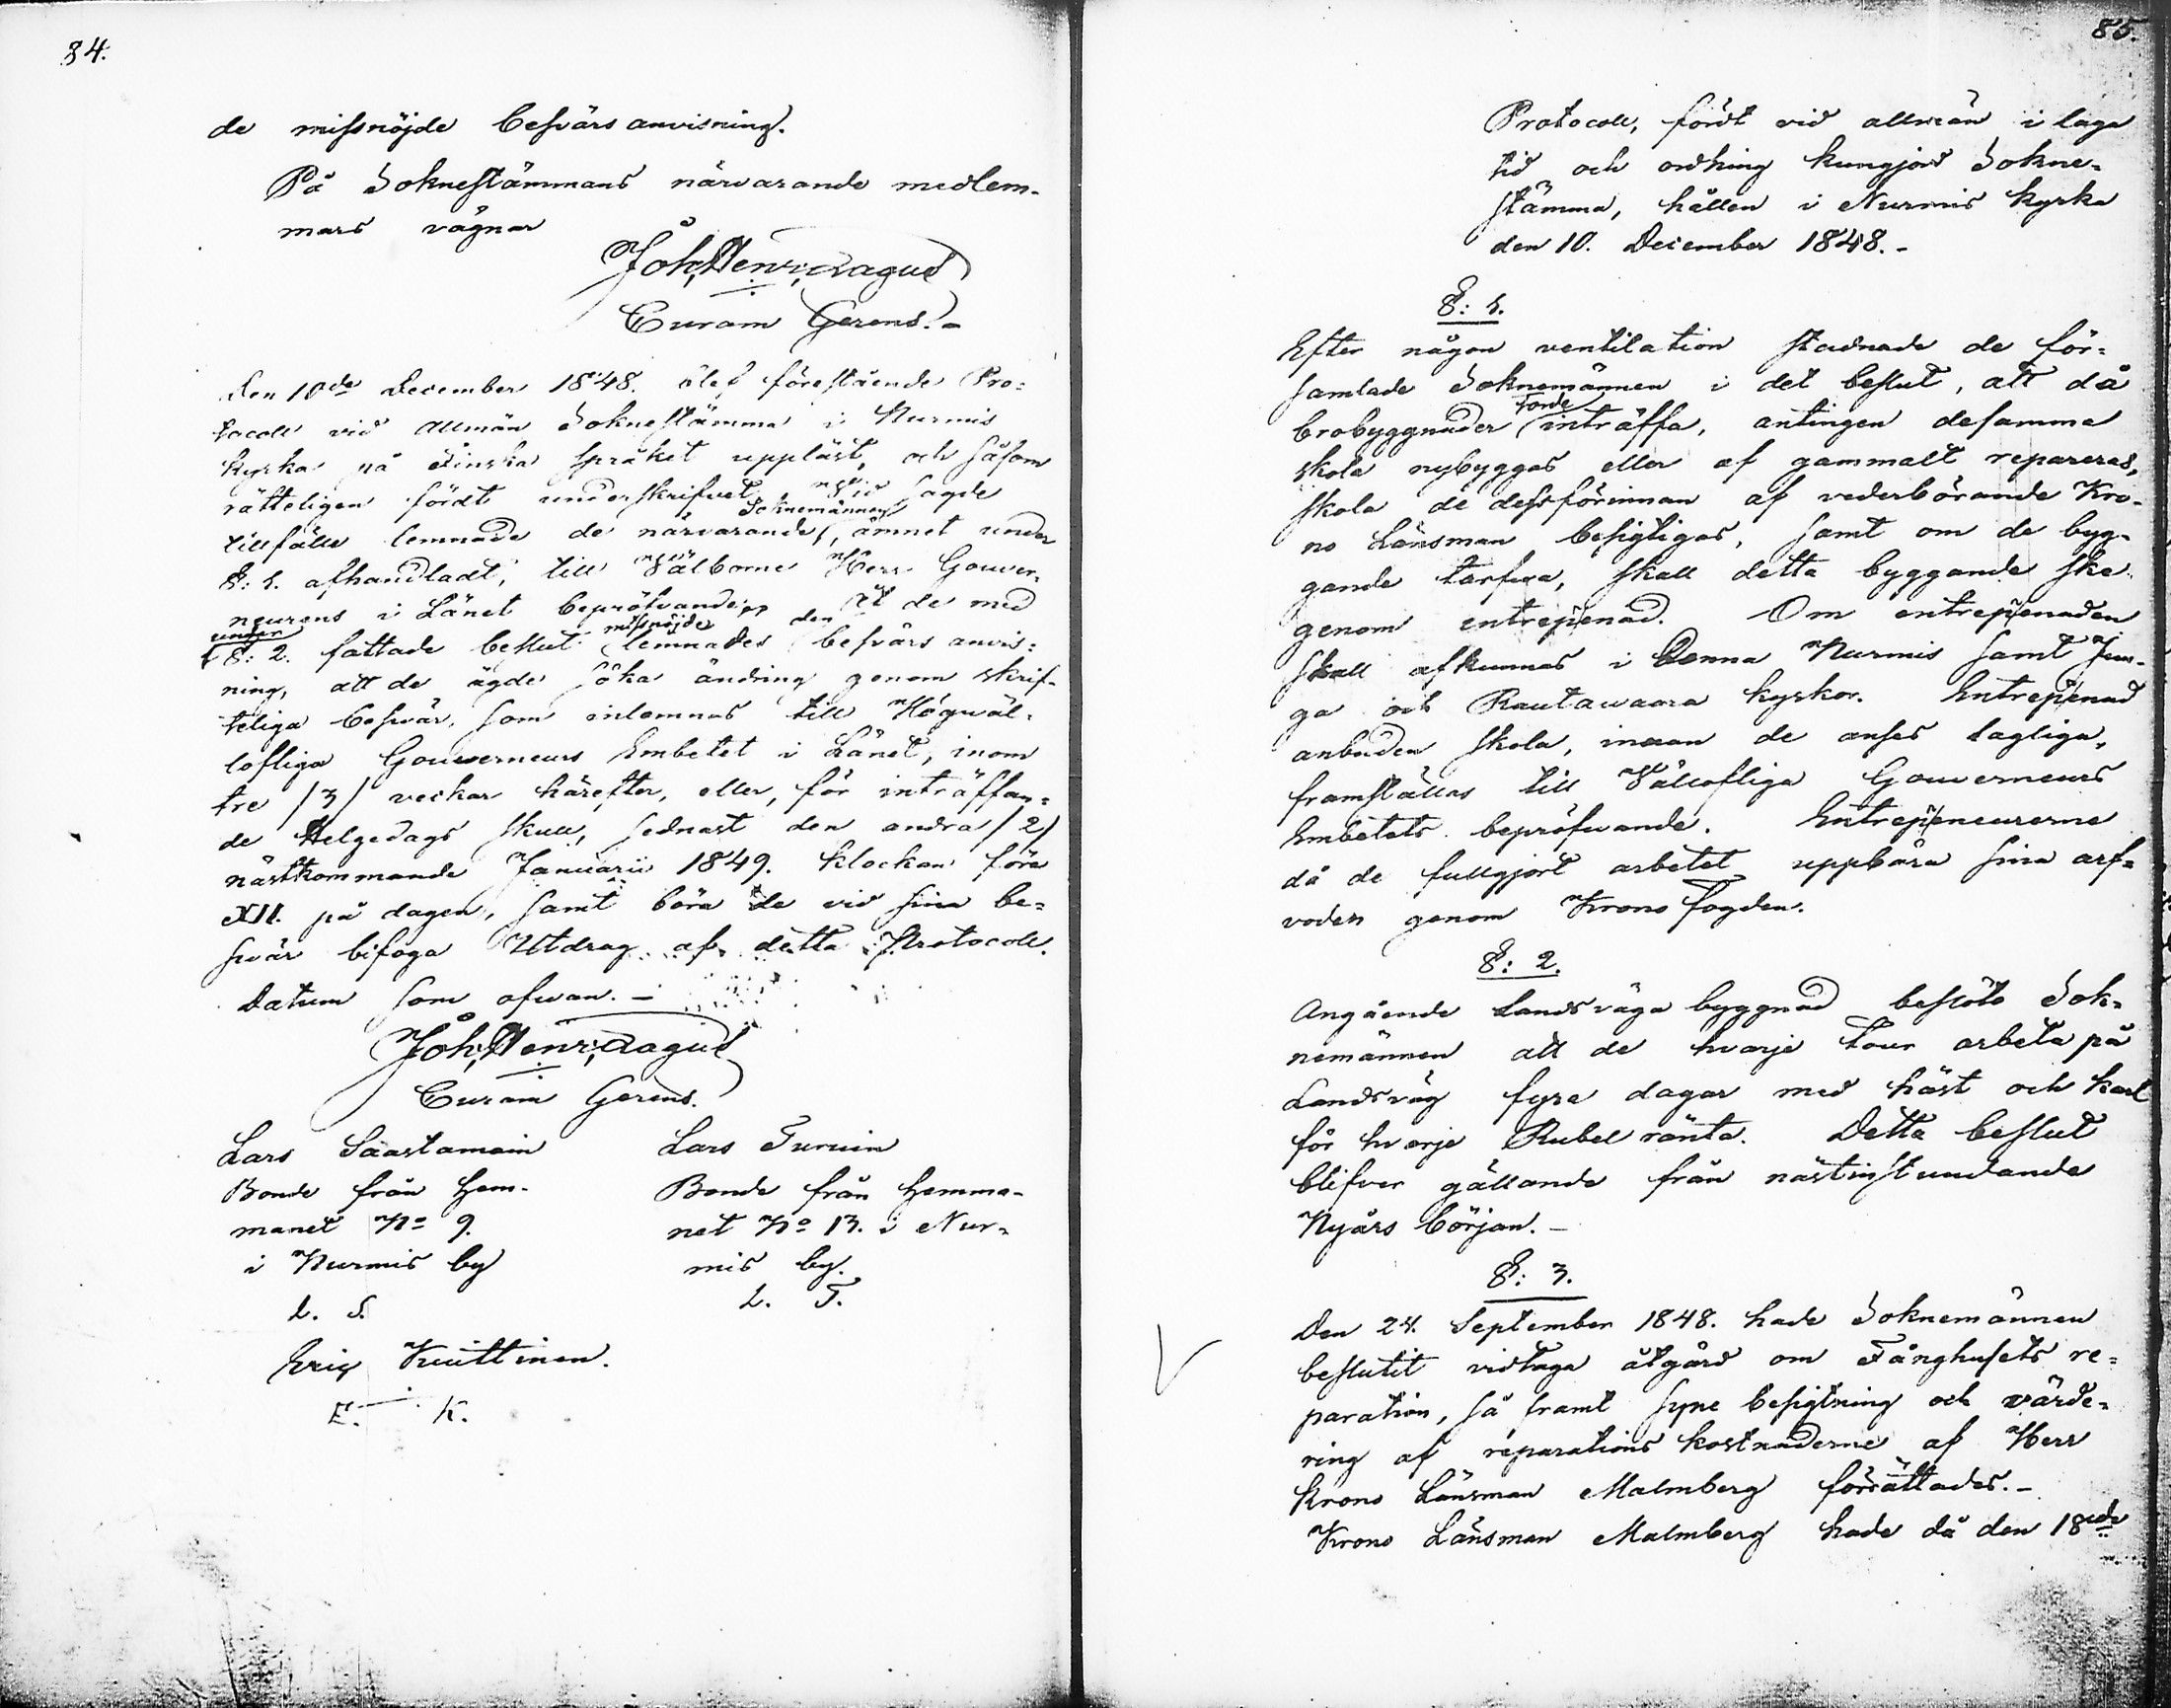 84.
de missnöjde besvärsanvisning.
På Soknestämmans närvarande medlem-
mars vägnar
Joh, Henr,
Curam Gerens.-
Den 10de December 1848. blef förestående Pro-
tocoll vid allmän Soknestämma i Nurmis
kyrka på Finska språket uppläst, och såsom
rätteligen fördt underskrifvet. Vid sagde
Soknemännen
tillfälle lemnade de närvarande, ämnet under
§: 1. afhandladt, till Välborne Herr Gouver-
neurens i Länet bepröfvande; åt de med
under missnöjde den
§: 2. fattade beslut lemnades besvärs anvis-
ning, att de ägde söka ändring genom skrif-
teliga besvär, som inlemnas till Högväl-
lofliga Gouverneurs Embetet i Länet, inom
tre /3/ veckor härefter, eller, för inträffan-
de Helgedags skull, sednast den andra /2/
nästkommande Januarii 1849. klockan före
XII. på dagen, samt böra de vid sina be-
svär bifoga Utdrag af detta Protocoll.
Datum som ofvan. -
Joh, Henr,
Curam Gerens.
Lars Saastamoin
Bonde från Hem-
manet No 9.
i Nurmis by
L. S.
Lars Turuin
Bonde från Hemma-
net No 13. i Nur-
mis by.
L. T.
Eric Kuittinen.
E. K.
85.
Protocoll, fördt vid allmän i laga
tid och ordning kungjord Sokne-
stämma, hållen i Nurmis kyrka
den 10. December 1848.-
§: 1.
Efter någon ventilation stadnade de för-
samlade Soknemännen i det beslut, att då
torde
brobyggnader inträffa, antingen desamma
skola nybyggas eller af gammalt repareras,
skola de dessförinnan af vederbörande Kro-
no Länsman besigtigas, samt om de byg-
gande tarfva, skall detta byggande ske
genom entrepenad. Om entrepenaden
skall afkunnas i Denna Nurmis samt Juu-
ga och Rautawaara kyrkor. Entrepenad
anbuden skola, innan de anses lagliga,
framställas till Vällofliga Gouverneurs
Embetets bepröfvande. Entrepeneurerne
då de fullgjort arbetet uppbära sina arf-
voden genom Krono fogden.
§: 2.
Angående Landsväga byggnad beslöto Sok-
nemännen att de hvarje tour arbeta på
Landsväg fyra dagar med häst och karl
för hvarje Rubel ränta. Detta beslut
blifver gällande från nästinstundande
Nyårs början.-
§: 3.
Den 24. September 1848. hade Soknemännen
beslutit vidtaga åtgärd om Fånghusets re-
paration, så framt syne besigtning och värde-
ring af reparations kostnaderne af Herr
Krono Länsman Malmberg förrättades.-
Krono Länsman Malmberg hade då den 18de